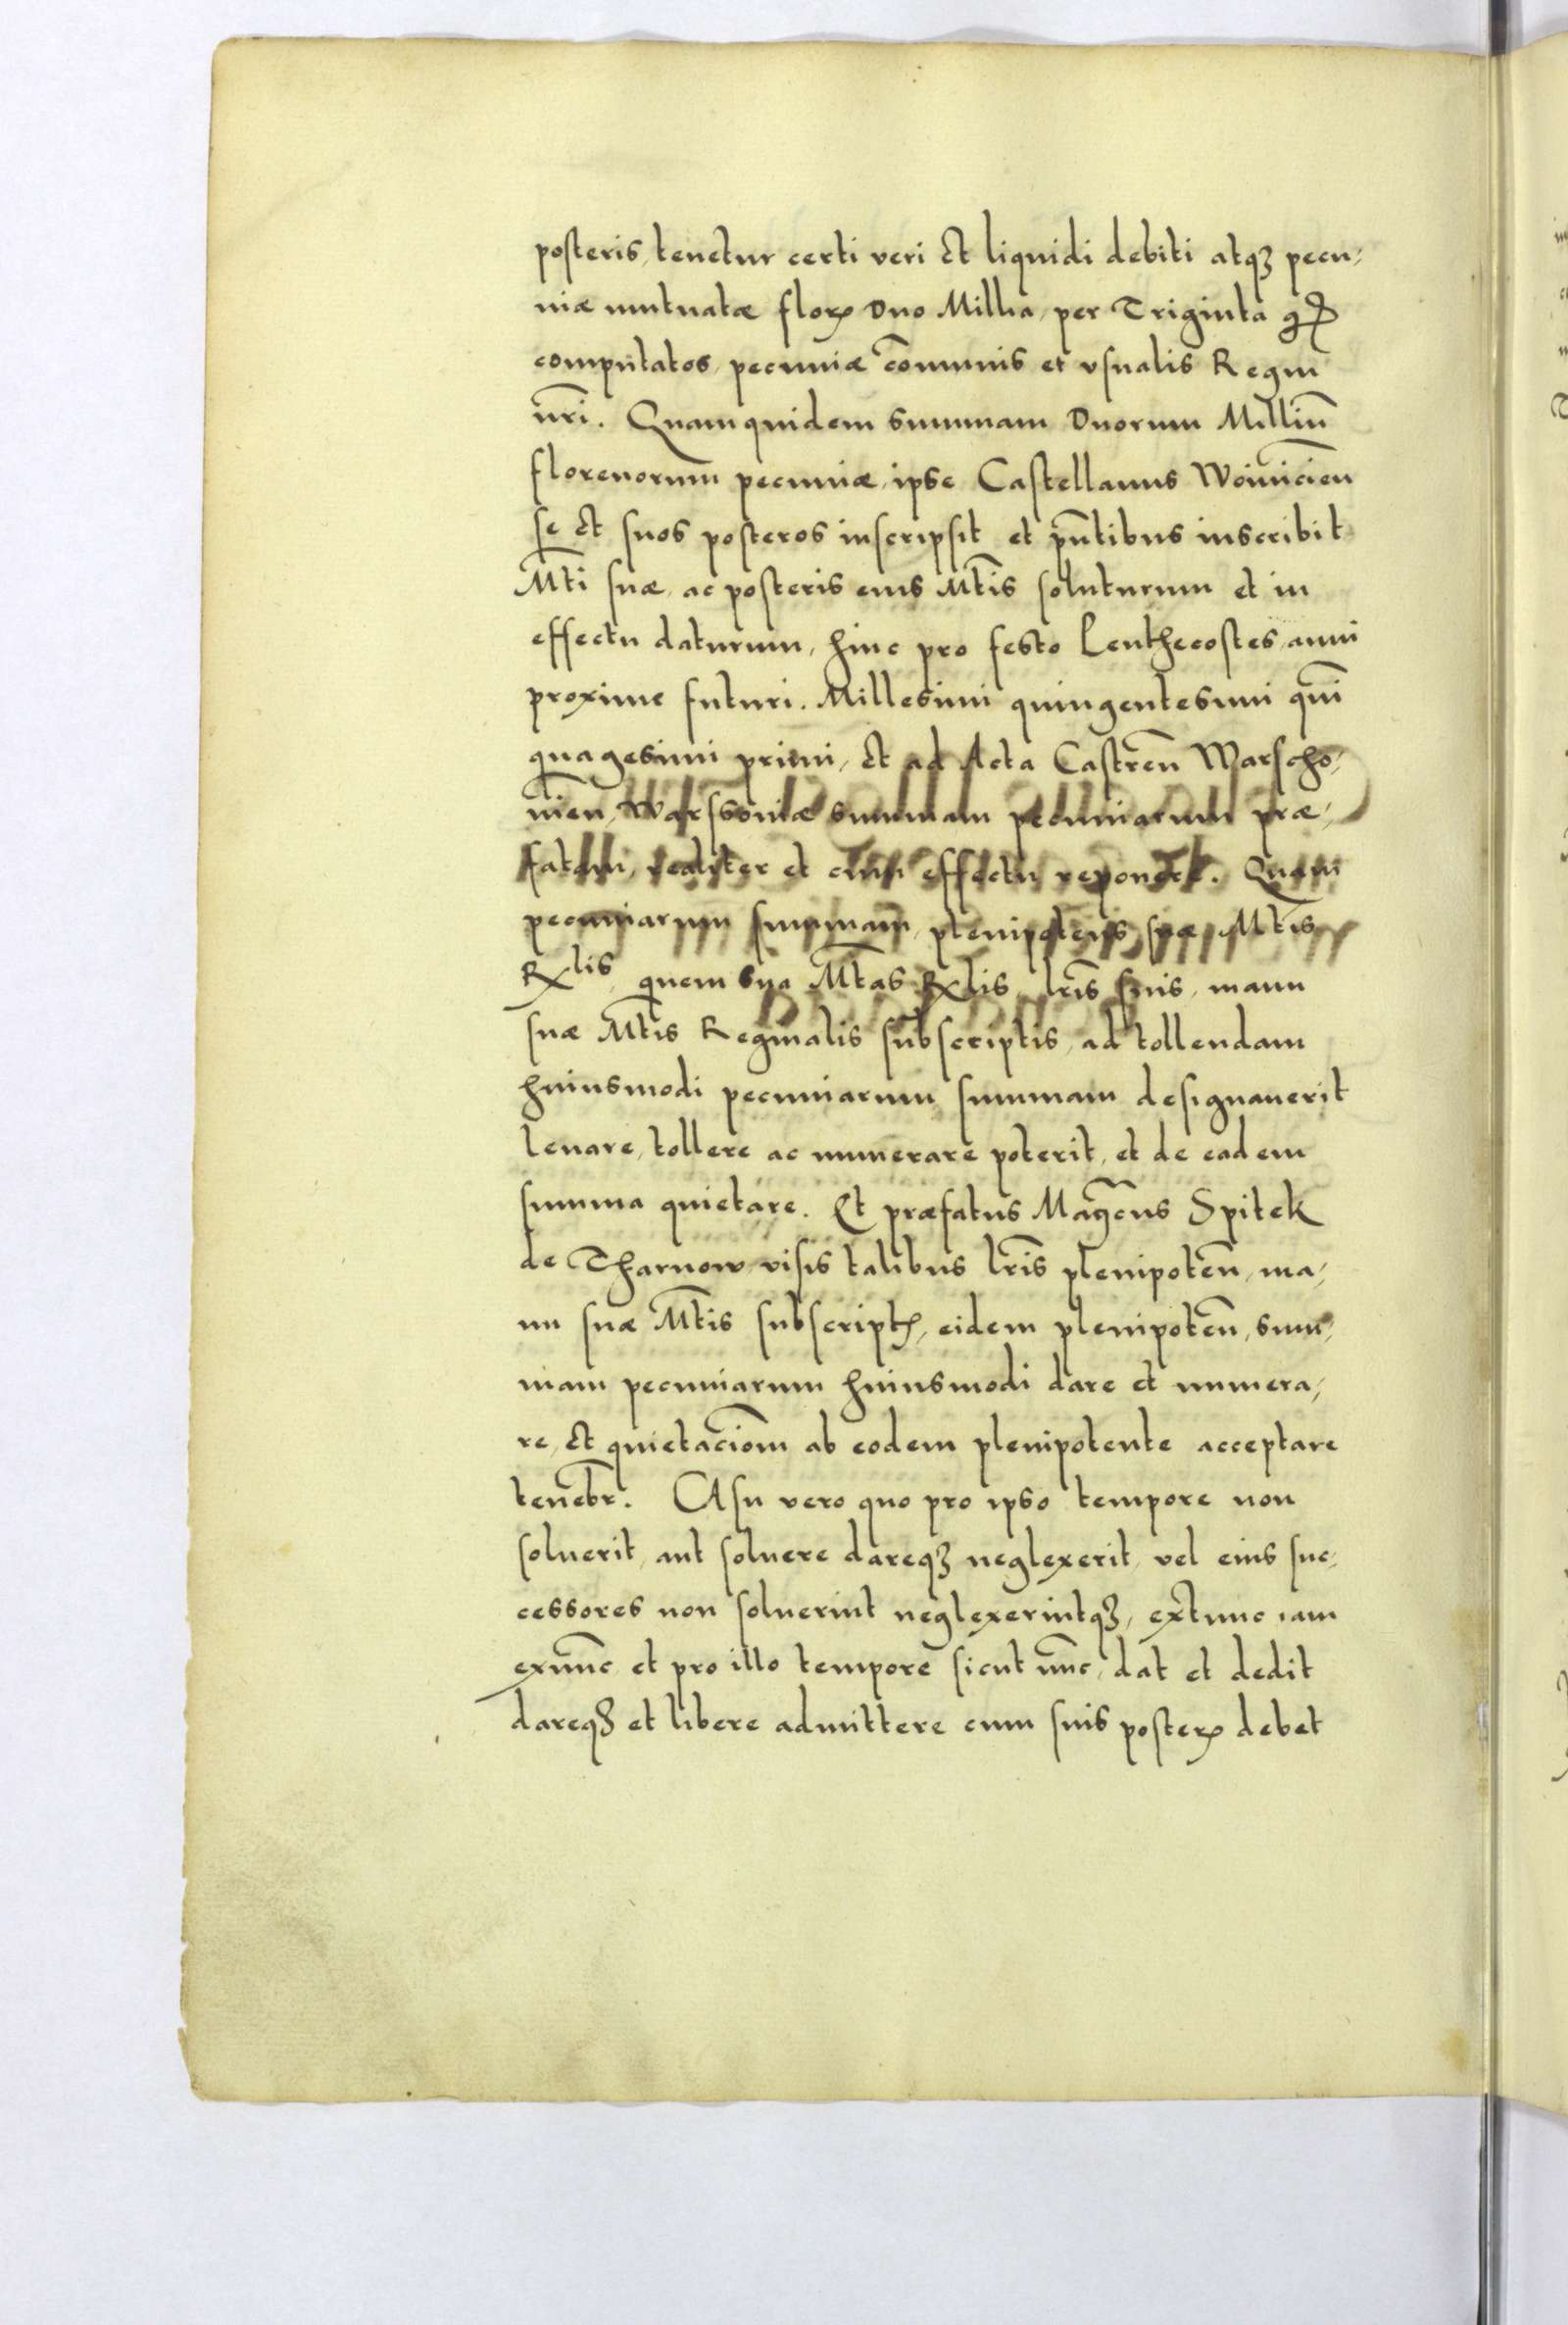 posteris, tenetur certi veri et liquidi debiti atqꝫ pecu⸗
niæ mutuatæ floꝝ Duo Millia, per Triginta gꝭ
computatos, pecuniæ cōmunis et vsualis Regni
nr̄i. Quam quidem summam Duorum Milliū
florenorum pecuniæ, ipse Castellanus Woiniciēn
se et suos posteros inscripsit et pn̄tibus inscribit
Mt̄i suæ, ac posteris eius Mt̄is soluturum et in
effectu daturum, hinc pro festo Penthecostes, anni
proxime futuri. Millesimi quingentesimi quī
quagesimi primi, et ad Acta Castrēn Warscho⸗
viēn, Warssoviæ summam pecuniarum præ⸗
fatam, realiter et cum effectu reponere. Quam
pecuniarum summam, plenipotens suæ Mt̄is
Rxlis, quem Sua Mt̄as Rxlis, lr̄is suis, manu
suæ Mt̄is Reginalis subscriptis, ad tollendam
huiusmodi pecuniarum summam designauerit
leuare, tollere ac numerare poterit, et de eadem
summa quietare. Et præfatus Magc̄us Spitek
de Tharnow, visis talibus lr̄is plenipotēn, ma⸗
nu suæ Mt̄is subscriptꝭ, eidem plenipotēn, sum⸗
mam pecuniarum huiusmodi dare et numera⸗
re, et quietaciōm ab eodem plenipotente acceptare
tenebr̄. Casu vero quo pro ipso tempore non
soluerit, aut soluere dareqꝫ neglexerit, vel eius suc⸗
cessores non soluerint neglexerintqꝫ, extunc iam
exnūc et pro illo tempore sicut nūc, dat et dedit
dareqꝫ et libere admittere cum suis posteꝝ debet